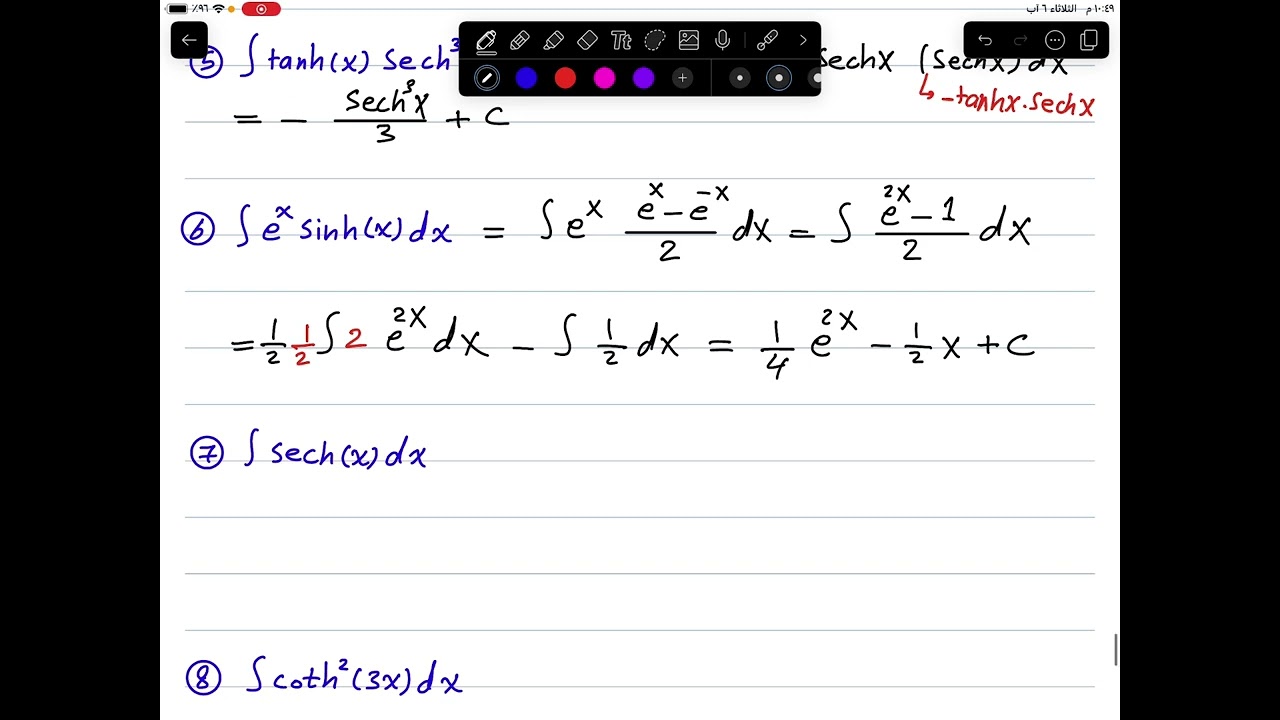 ١٠:٤٩ م الثلاثاء ٦ آب
٩٦٪
Tt
⑤ ∫ tanh(x) Sech³ sechx (sechx) dx
↳ -tanhx.sechx
= - Sech³x/3 + C
⑥ ∫ eˣ sinh(x) dx = ∫ eˣ (eˣ - e⁻ˣ)/2 dx = ∫ (e²ˣ - 1)/2 dx
= 1/2 1/2 ∫ 2 e²ˣ dx - ∫ 1/2 dx = 1/4 e²ˣ - 1/2 x + C
⑦ ∫ sech(x) dx
⑧ ∫ coth²(3x) dx